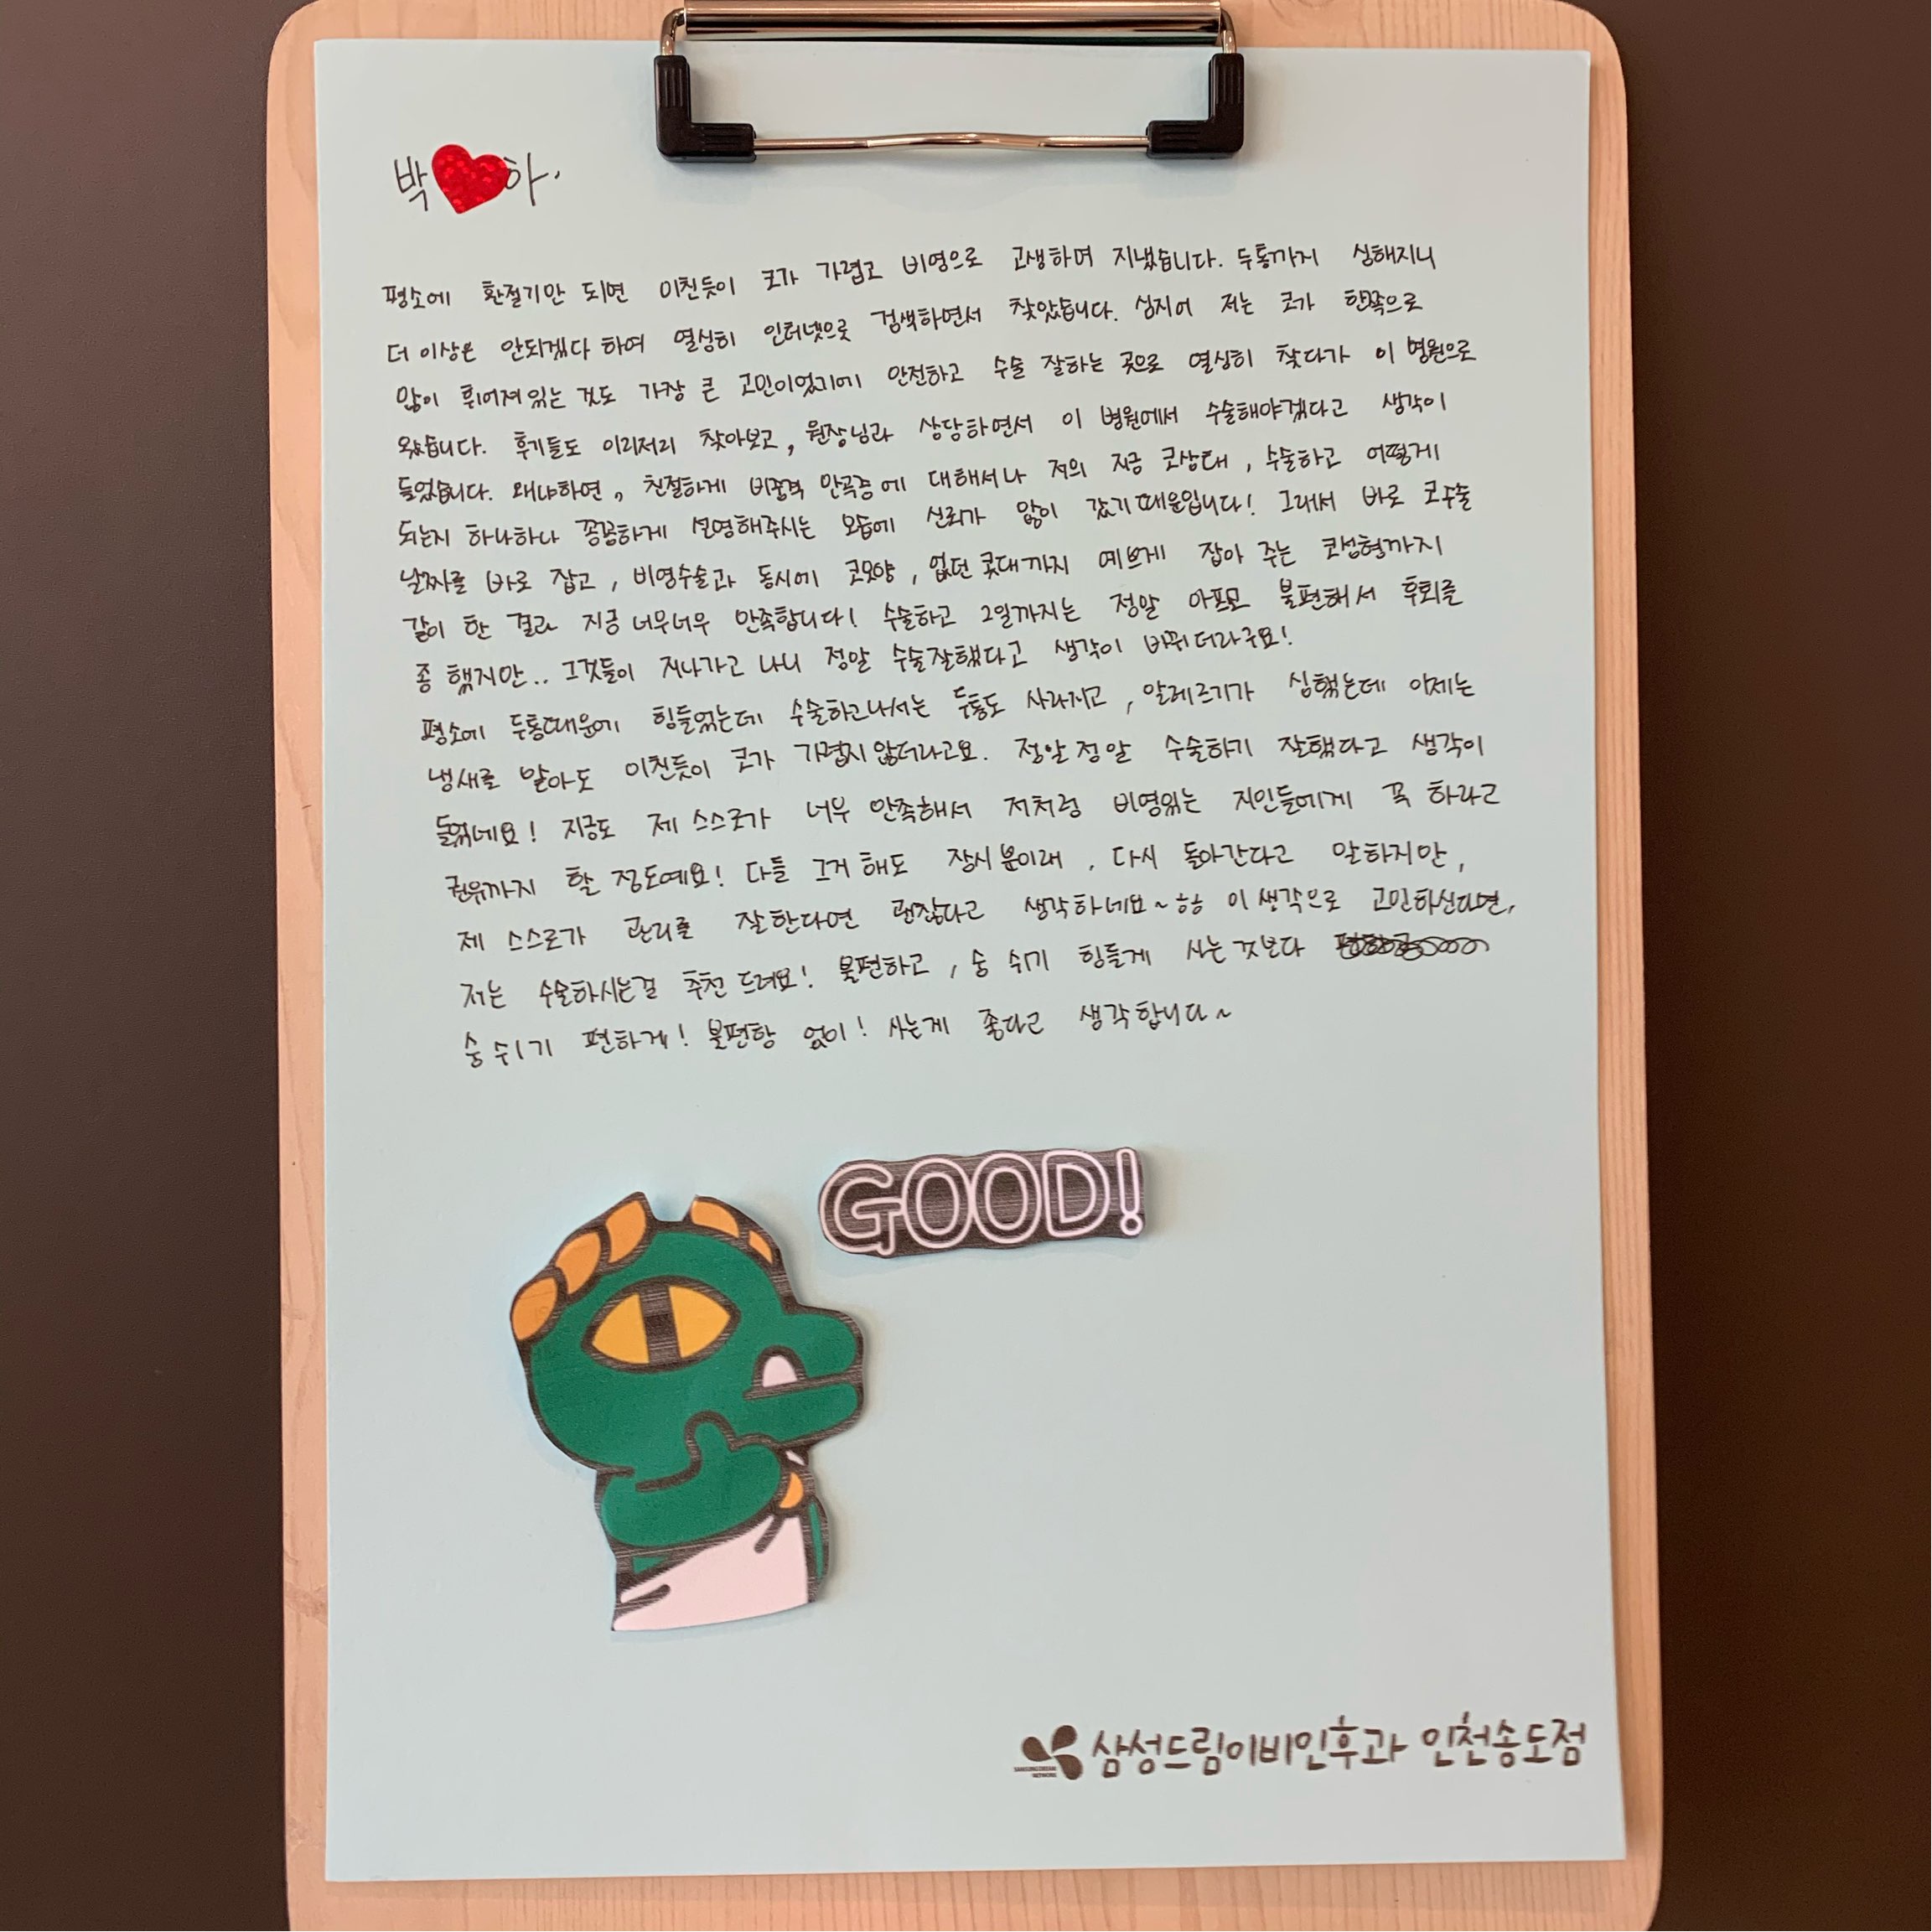 박 아.
평소에 환절기만 되면 미친듯이 코가 가렵고 비염으로 고생하며 지냈습니다. 두통까지 심해지니
더 이상은 안되겠다 하여 열심히 인터넷으로 검색하면서 찾았습니다. 심지어 저는 코가 한쪽으로
많이 휘어져 있는 것도 가장 큰 고민이었기에 안전하고 수술 잘하는 곳으로 열심히 찾다가 이 병원으로
왔습니다. 후기들도 이리저리 찾아보고, 원장님과 상담하면서 이 병원에서 수술해야겠다고 생각이
들었습니다. 왜냐하면, 친절하게 비중격 만곡증에 대해서나 저의 지금 코상태, 수술하고 어떻게
되는지 하나하나 꼼꼼하게 설명해주시는 모습에 신뢰가 많이 갔기 때문입니다! 그래서 바로 코수술
날짜를 바로 잡고, 비염수술과 동시에 코모양, 없던 콧대까지 예쁘게 잡아 주는 코성형까지
같이 한 결과 지금 너무너무 만족합니다! 수술하고 2일까지는 정말 아프고 불편해서 후회를
좀 했지만.. 그것들이 지나가고 나니 정말 수술잘했다고 생각이 바뀌더라구요!
평소에 두통때문에 힘들었는데 수술하고나서는 두통도 사라지고, 알레르기가 심했는데 이제는
냄새를 맡아도 미친듯이 코가 가렵지 않더라고요. 정말정말 수술하기 잘했다고 생각이
들었네요! 지금도 제 스스로가 너무 만족해서 저처럼 비염있는 지인들에게 꼭 하라고
권유까지 할 정도예요! 다들 그거 해도 잠시 뿐이래, 다시 돌아간다고 말하지만,
제 스스로가 관리를 잘한다면 괜찮다고 생각하네요~ㅎㅎ 이 생각으로 고민하신다면,
저는 수술하시는걸 추천 드려요! 불편하고, 숨 쉬기 힘들게 사는것보다
숨 쉬기 편하게! 불편함 없이! 사는게 좋다고 생각합니다~
GOOD!
삼성드림이비인후과 인천송도점